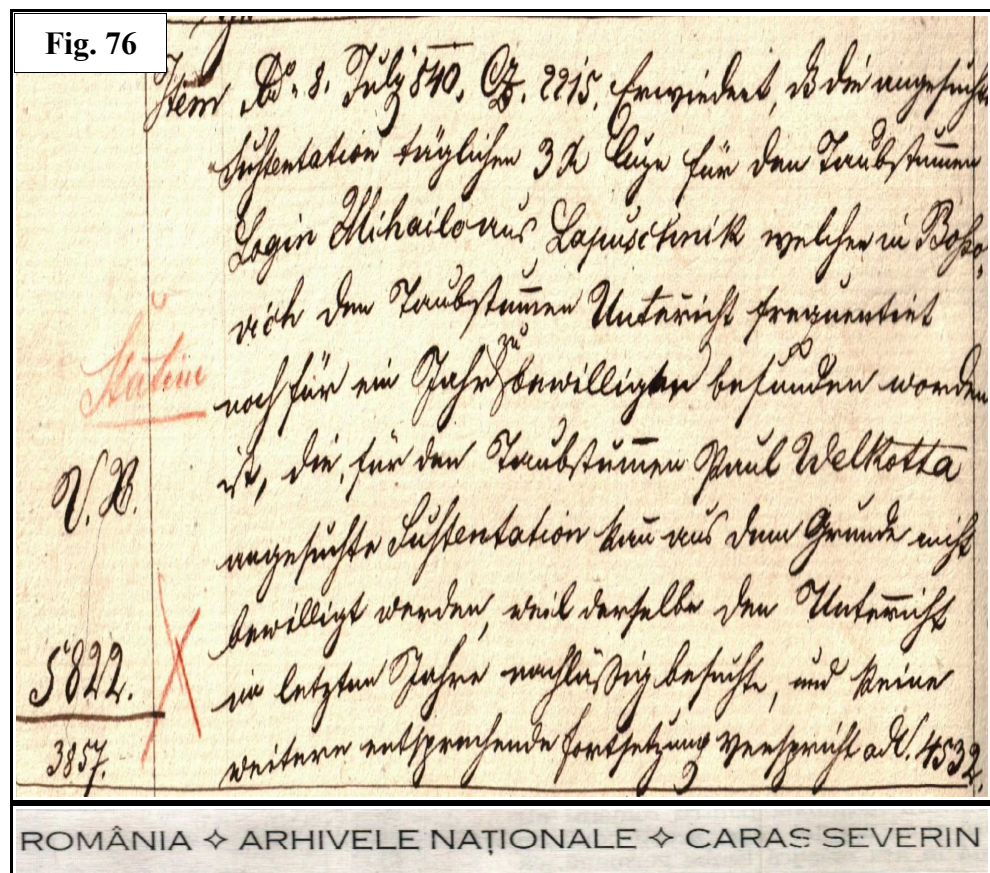 Fig. 76
Item Do. 8. July 840, Cz. 2215. Erwiedert, daß die angesuchte
Sustentation täglicher 3 x Cmze für den Taubstum̅en
Login Mihailo aus Lapuschnik welcher in Boso-
vich den Taubstum̅en Unter̅icht frequentirt
noch für ein Jahr zu bewilligen befunden worden
ist, die, für den Taubstum̅en Paul Welkotta
angesuchte Sustentation kan̅ aus dem Grunde nicht
bewilligt werden, weil derselbe den Unter̅icht
im letzten Jahre nachläßig besuchte, und keine
weitere entsprechende Fortsetzung verspricht ad N. 4532.
V. B.
5822.
3857.
ROMÂNIA ✧ ARHIVELE NAȚIONALE ✧ CARAȘ SEVERIN